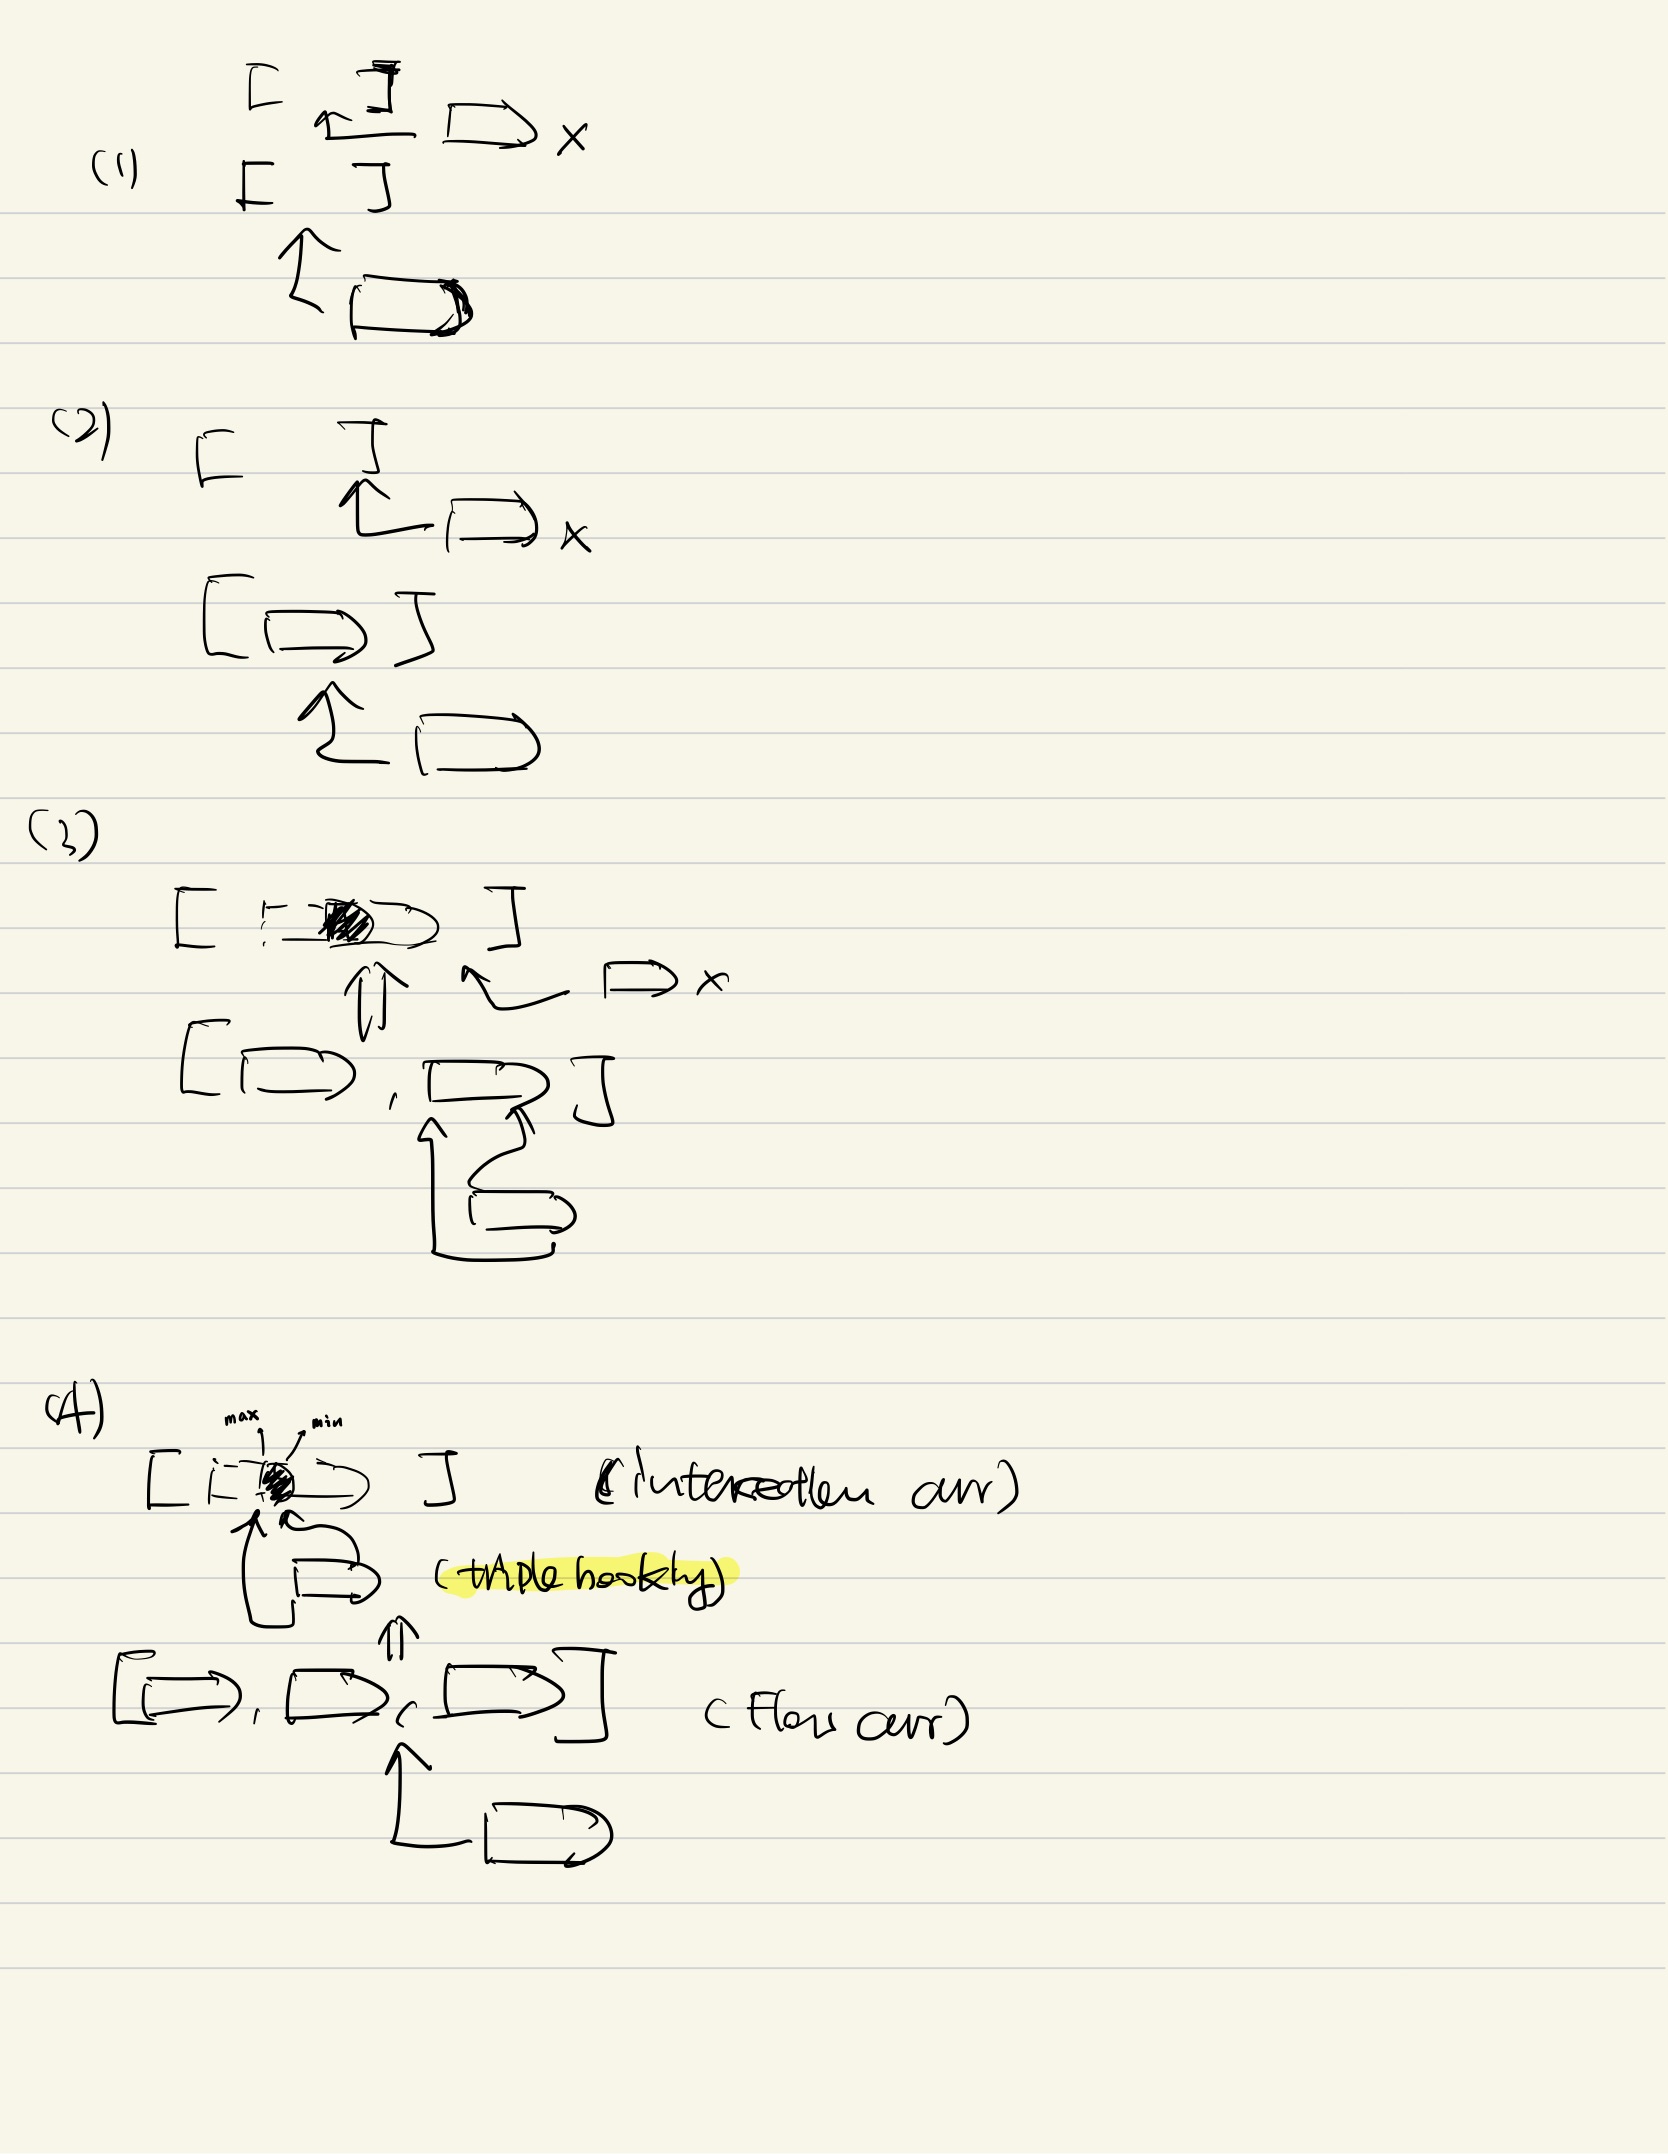 [ ]
x
(1)
[ ]
(2)
[ ]
x
[ ]
(3)
[ ]
x
[ , ]
(4)
max min
[ ] (intersection arr)
(triple booking)
[ , , ]
arr)